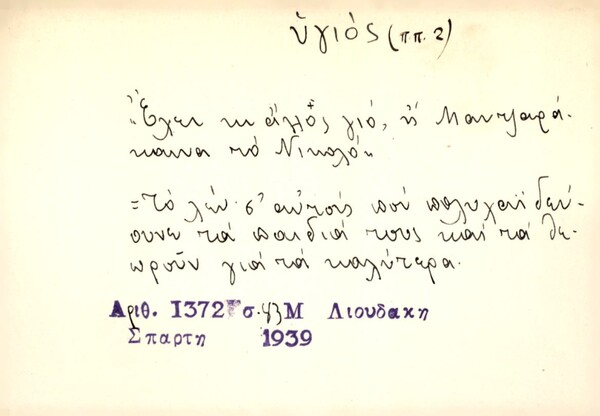 ὑγιός (ππ. 2)
"Ἔχει κι ἄλλος γιό, ἡ Μαντζαρά-
καινα τό Νικολό"
=Τό λέν σ' αὐτούς πού πολυχαϊδεύ-
ουνε τά παιδιά τους καί τά θε-
ωροῦν γιά τά καλύτερα.
Αριθ. 1372 σ. Μ Λιουδακη
Σπαρτη 1939